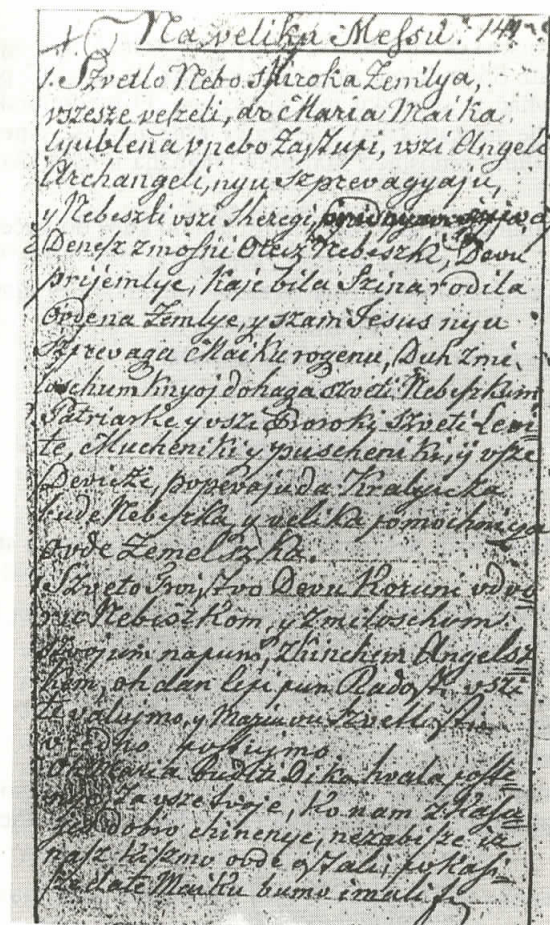 Na veliku Messu. 141
1. Szvetlo Nebo shiroka Zemlya,
vszesze veszeli, da Maria Maika
lyublena vnebo Zasztupi, vszi Angeli
Archangeli, nyu szprevagyaju,
y Nebeszki vszi Sheregi,
2 Denesz zmosni Otecz Nebeszki, Devu
prijemlye, kaje bila Szina rodila
ovde na Zemlye, y szam Jesus nyu
szprevaga Maiku rogenu, Duh zmi-
loschum knyoj dohaga szveti Nebeszkum
Patriarke y vszi Proroki, szveti Levi-
te, Mucheniki y puscheniki, y vsze
Devicze, popevaju da Kralyicza
bude Nebeszka, y velika pomochnicza
ovde Zemelszka.
Szveto Troisztvo Devu Koruni vdvo-
ru Nebeszkom, y zmiloschum
szvojum napuni, zhinchem Angelsz-
kem, oh dan lepi pun Radoszti vszi
te valujmo, y Mariu vu szvetloszti
vredno postujmo
Oh Maria buditi Dika hvala poste-
nye Za vsze tvoje, ko nam zkasu-
jes dobro chinenye, nezabisze iz
nasz kiszmo ovde osztali, pokasi-
sze da te Maiku bumo imali